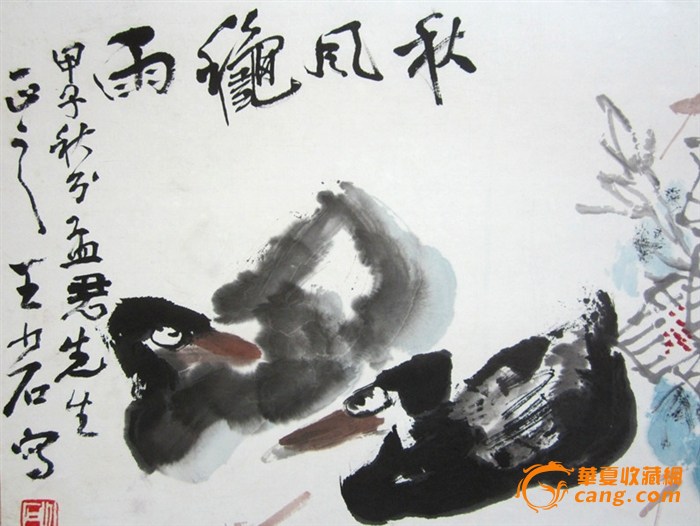 秋风穐雨
甲子秋分孟君先生
正之 王少石写
華夏收藏網
cang.com